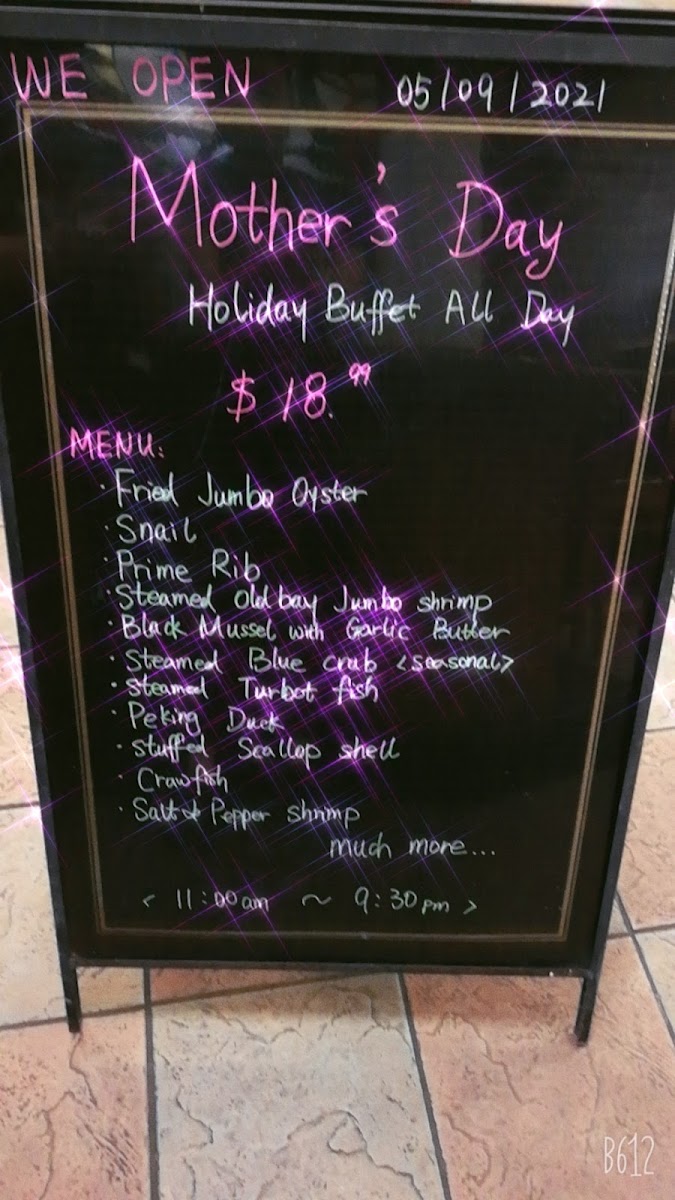 WE OPEN 05/09/2021
Mother's Day
Holiday Buffet All Day
$18.99
MENU:
· Fried Jumbo Oyster
· Snail
· Prime Rib
· Steamed Old bay Jumbo shrimp
· Black Mussel with Garlic Butter
· Steamed Blue crab <seasonal>
· Steamed Turbot fish
· Peking Duck
· Stuffed Scallop shell
· Crawfish
· Salt & Pepper shrimp
much more...
< 11:00am ~ 9:30pm >
B612